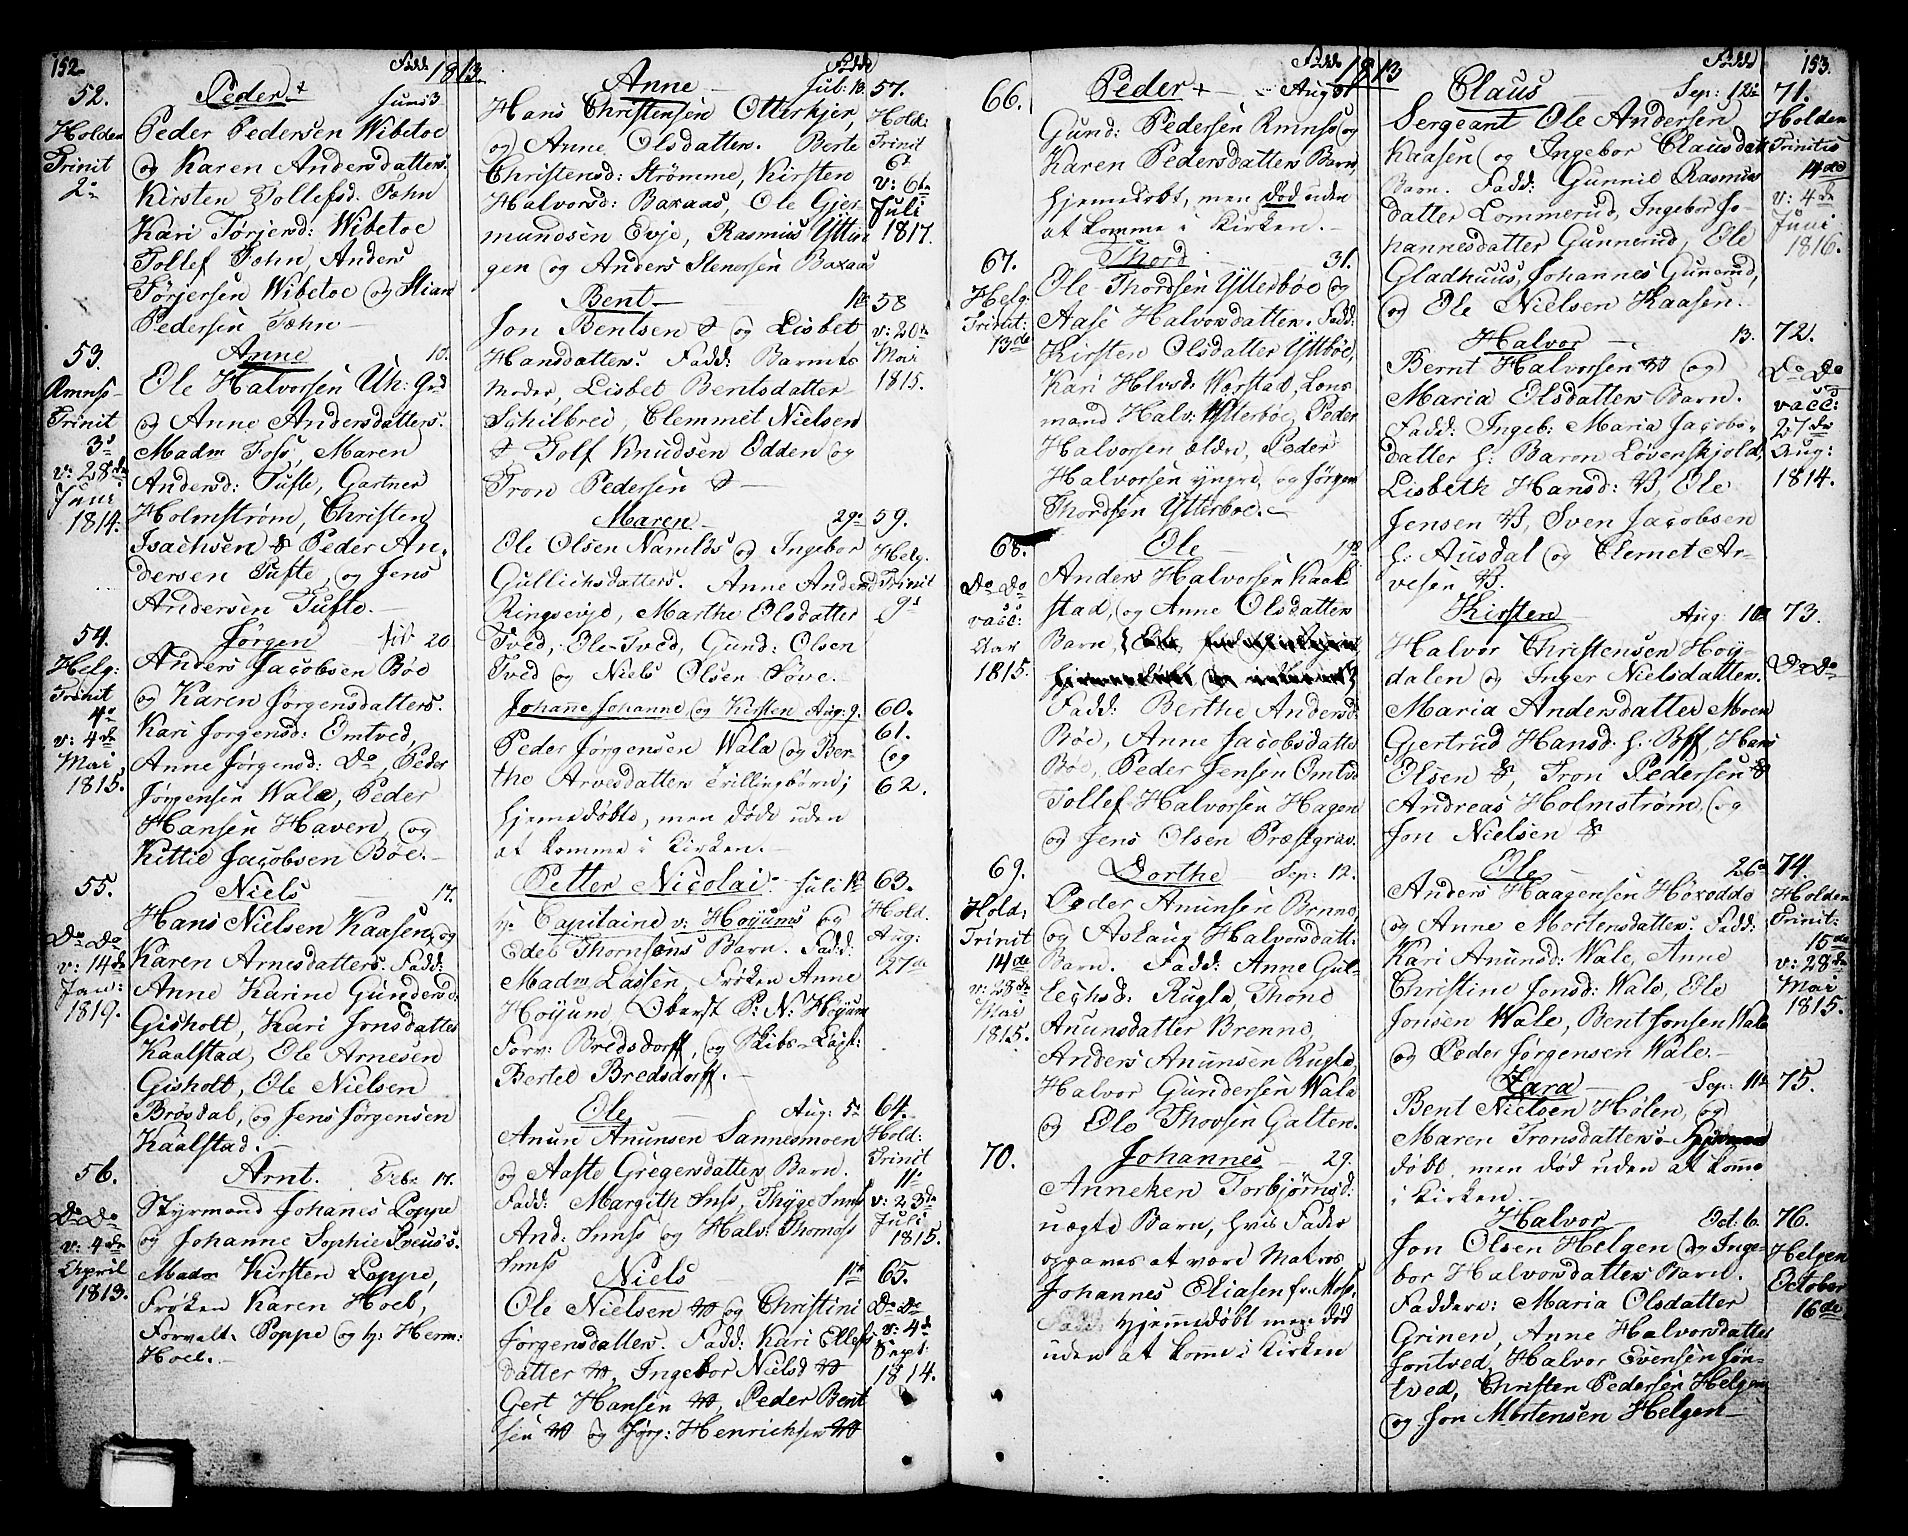 152.
Fødd 1813.
52.
Holden
Trinit
2den
Peder + Juni 3
Peder Pedersen Wibetoe
og Karen Andersdatters.
Kirsten Tollefsd: Fæhn
Kari Tørjersd: Wibetoe
Tollef Fæhn, Anders
Tørjersen Wibetoe og Stian
Pedersen Fæhn
53.
Trinit
3die
v: 28de
Juni
1814.
Anne 10.
Ole Halvorsen Uh: Grd
og Anne Andersdatters.
Madm Foss, Maren
Andersd: Tufte, Gartner
Holmstrøm, Christen
Isachsen & Peder An-
dersen Tufte, og Jens
Andersen Tufte.
54.
Helg:
Trinit
4de
v: 4de
Mai
1815.
Jørgen 20
Anders Jacobsen Bøe
og Karen Jørgensdatters.
Kari Jorgensd: Omtved,
Anne Jørgensd: Do, Peder
Jørgensen Wala, Peder
Hansen Haven, og
Kittil Jacobsen Bøe.
55.
Do Do
v: 14de
Jan:
1819.
Niels 17.
Hans Nielsen Kaasen, og
Karen Arnesdatters. Fadd:
Anne Karine Gundersd:
Gisholt, Kari Jonsdatter
Kaalstad, Ole Arnesen
Gisholt, Ole Nielsen
Brøsdal, og Jens Jørgensen
Kaalstad.
56.
Do Do
v: 4de
April
1813.
Arnt. Febr: 17.
Styrmand Johanes Poppe
og Johanne Sophie Preus's.
Madm Kirsten Poppe,
Frøken Karen Hoel,
Forvalt: Poppe og hr: Herm:
Hoel.
Fødd
Anne Jul: 13. 57.
Hans Christensen Otterkjer,
og Anne Olsdatters. Berte
Christensd: Strømme, Kirsten
Halvorsd: Baxaas, Ole Gjer
mundsen Evje, Rasmus Ytterin
gen og Anders Stenersen Baxaas
Hold:
Trinit
6te
v: 6te
Juli
1817.
Bent 1te 58
Jon Bentsen & og Lisbet
Hansdatters. Fadd: Barnets
Moder, Lisbet Bentsdatter
Schilbred, Clemmet Nielsen
& Tolf Knudsen Odden og
Tron Pedersen &
v: 20de
Mai
1815.
Maren 29de 59.
Ole Olsen Namløs og Ingebor
Gullichsdatters. Anne Andersd
Ringsevje, Marthe Olsdatter
Tved, Ole Tved, Gund: Olsen
Tved og Niels Olsen Søve.
Helg.
Trinit
9de
Johanne Johanne og Kirsten Aug: 9. 60.
61.
og
62.
Peder Jørgensen Wala og Ber-
the Arvesdatters Trillingbørn;
hjemedøbte, men døde uden
at komme i Kirken.
Petter Nicolai Juli 1te 63.
hr Capitaine v: Høyums og
Edel Thornsøns Barn. Fadd:
Madm Lassen, Frøken Anne
Høyum, Oberst P: N: Høyum
Forv: Bredsdorff, og Skibs-Capt:
Bertel Bredsdorff.
Hold.
Aug:
27de
Ole Aug: 5te 64.
Anun Anunsen Sannesmoen
og Aaste Gregersdatters Barn.
Fadd: Margith Snss, Thyge Snss
And: Snss og Halv: Thomoss
Snss
Hold:
Trinit
11te
v: 23de
Juli
1815.
Niels 1te 65.
Ole Nielsen og Christini
Jørgensdatters. Fadd: Kari Ellefs
datter, Ingebor Nielsd
Gert Hansen, Peder Bent
sen og Jørg: Henrichsen
Do Do
v: 4de
Sept:
1814.
Fødd 1813
66.
Peder + Aug 31
Gund: Pedersen Rmnss og
Karen Pedersdatters Barn
hjemedøbt, men død uden
at komme i Kirken.
67.
Helg:
Trinit:
13de
Thord 31.
Ole Thordsen Ytterbøe og
Aase Halvorsdatters. Fadd:
Kirsten Olsdatter Yttbøe,
Kari Halvsd: Værstad, Lens
mand Halv: Ytterbøe, Peder
Halvorsen ældre, Peder
Halvorsen yngre, og Jørgen
Thordsen Ytterboe.
68.
Do Do
vacc:
1815.
Ole 19de
Anders Halvorsen Kaal
stad, og Anne Olsdatters
Barn,
Fadd: Berthe Andersd:
Bøe, Anne Jacobsdatter
Bøe, Peder Jensen Omtve
Tollef Halvorsen Hagen
og Jens Olsen Præstgrav.
69.
Hold:
Trinit
14de
v: 28de
Mai
1815.
Dorthe Sep: 12.
Peder Anunsen Brenne,
og Aslaug Halvorsdatt:
Barn. Fadd: Anne Gul-
lechsd: Rugla, Thone
Anunsdatter Brenne,
Anders Anunsen Rugla,
Halvor Gundersen Wala
og Ole Thovsen Galten.
70.
Johannes 29.
Anneken Torbjørnsd:
uægte Barn, hvis Fader
opgaves at være Matros
Johannes Eliasen fr: Moss.
Hjemmedøbt men død
uden at komme i Kirken
Fødd 153.
Claus Sep: 12te 71.
Sergeant Ole Andersen
Kaasen og Ingebor Clausdatt
Barn. Fadd: Gunnil Rasmus
datter Lommerud, Ingebor Jo-
hannesdatter Gunnerud, Ole
Gladhuus, Johannes Gunerud,
og Ole Nielsen Kaasen.
Holden
Trinitis
14de
v: 4de
Juni
1816.
Halvor 13. 72.
Bernt Halvorsen og
Maria Olsdatters Barn.
Fadd: Ingeb: Maria Jacobs-
datter h: Baron Løvenskjold,
Lisbeth Hansd:, Ole
Jensen, Sven Jacobsen
h: Ausdal og Clemet Ar-
vesen.
Do Do
vacc:
27de
Aug:
1814.
Kirsten Aug: 10de 73.
Halvor Christensen Høy-
dalen og Inger Nielsdatters.
Maria Andersdatter Moen
Gjertrud Hansd: h: Bff, Hans
Olsen &, Tron Pedersen &
Andreas Holmstrøm, og
Jon Nielsen &
Do Do
Ole 26de 74.
Anders Haagensen Hoxodde
og Anne Mortensdatters. Fadd:
Kari Anunsd: Wale, Anne
Christine Jonsd: Wale, Ole
Jonsen Wale, Bent Jonsen Wale
og Peder Jørgensen Wale.
Holden
Trinit:
15de
v: 28de
Mai
1815.
Zara Sep: 11te 75.
Bent Nielsen Holen, og
Maren Tronsdatters Hjemme
døbt, men død uden at komme
i Kirken.
Halvor Oct: 6. 76.
Jon Olsen Helgen og Inge-
bor Halvorsdatters Barn.
Faddere: Maria Olsdatter
Grinen, Anne Halvorsdatter
Jontved, Halvor Evensen Jøn-
tved, Christen Pedersen Helgen
og Jon Mortensen Helgen
Helgen
October
16de